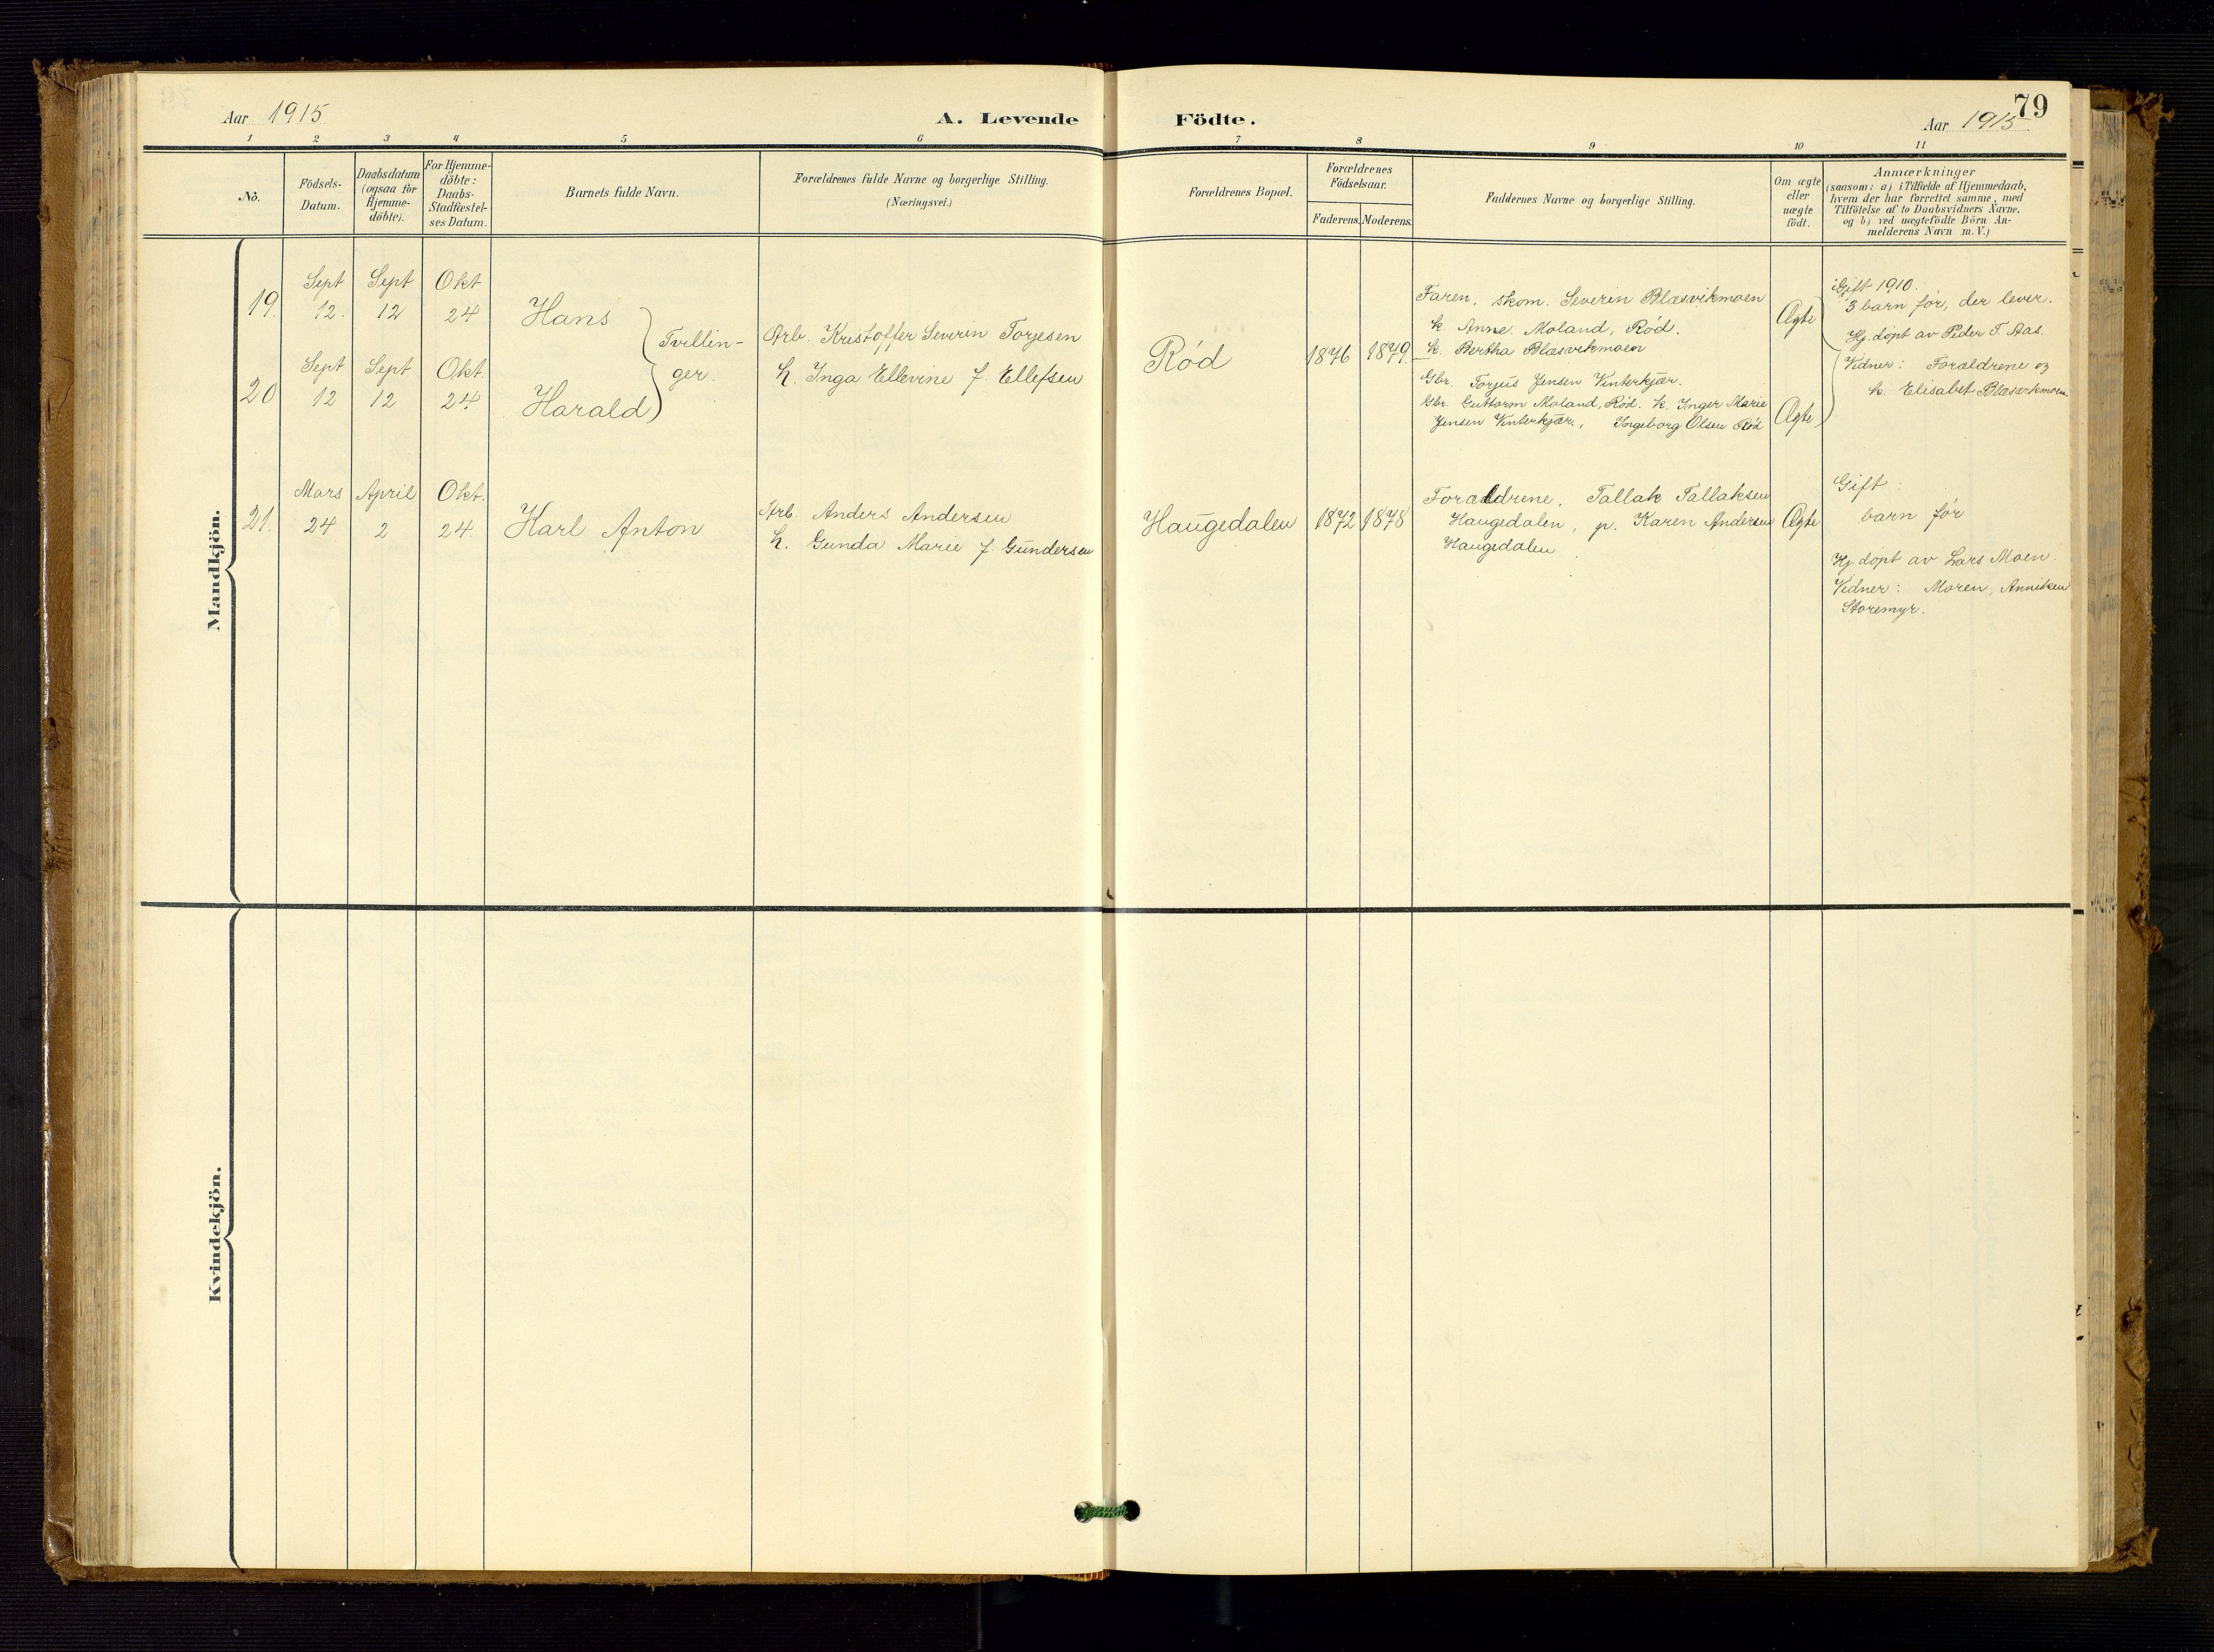 79
Aar 1915
A. Levende Födte.
Aar 1915
1 2 3 4 5 6 7 8 9 10 11
No.
Födsels-
Datum.
Daabsdatum
(ogsaa for
Hjemme-
döbte).
For Hjemme-
döbte:
Daabs-
Stadfæstel-
ses Datum.
Barnets fulde Navn.
Forældrenes fulde Navne og borgerlige Stilling.
(Næringsvei.)
Forældrenes Bopæl.
Forældrenes
Födselsaar.
Faderens. Moderens.
Faddernes Navne og borgerlige Stilling.
Om ægte
eller
uægte
födt.
Anmærkninger
(saasom: a) i Tilfælde af Hjemmedaab,
hvem der har forrettet samme, med
Tilföielse af to Daabsvidners Navne,
og b) ved uægtefödte Börn An-
melderens Navn m. V.)
Mandkjön.
19.
Sept
12.
Sept
12
Okt
24
Hans
20
Sept
12
Sept
12
Okt.
24.
Harald
Tvillin-
ger.
Arb. Kristoffer Severin Torjesen
h. Inga Ellevine f. Ellefsen
Rød
1876
1879.
Faren, skom. Severin Blæsvikmoen
k. Anne Moland, Rød.
k. Bertha Blæsvikmoen
Gbr. Torjus Jensen Vinterkjær.
Gbr. Guttorm Moland, Rød. k. Inger Marie
Jensen Vinterkjær., Ingeborg Olsen Rød
Ægte
Ægte
Gift 1910.
3 barn før, der lever.
Hj. døpt av Peder T. Aas.
Vidner: Forældrene og
k. Elisabet Blæsvikmoen
21.
Mars
24
April
2
Okt.
24.
Karl Anton
Arb. Anders Andersen
h. Gunda Marie f. Gundersen
Haugedalen
1872
1878
Forældrene, Tallak Tallaksen
Haugedalen, p. Karen Andersen
Haugedalen.
Ægte
Gift:
barn før
Hj. døpt av Lars Moen.
Vidner: Moren, Anniken
Storemyr.
Kvindekjön.